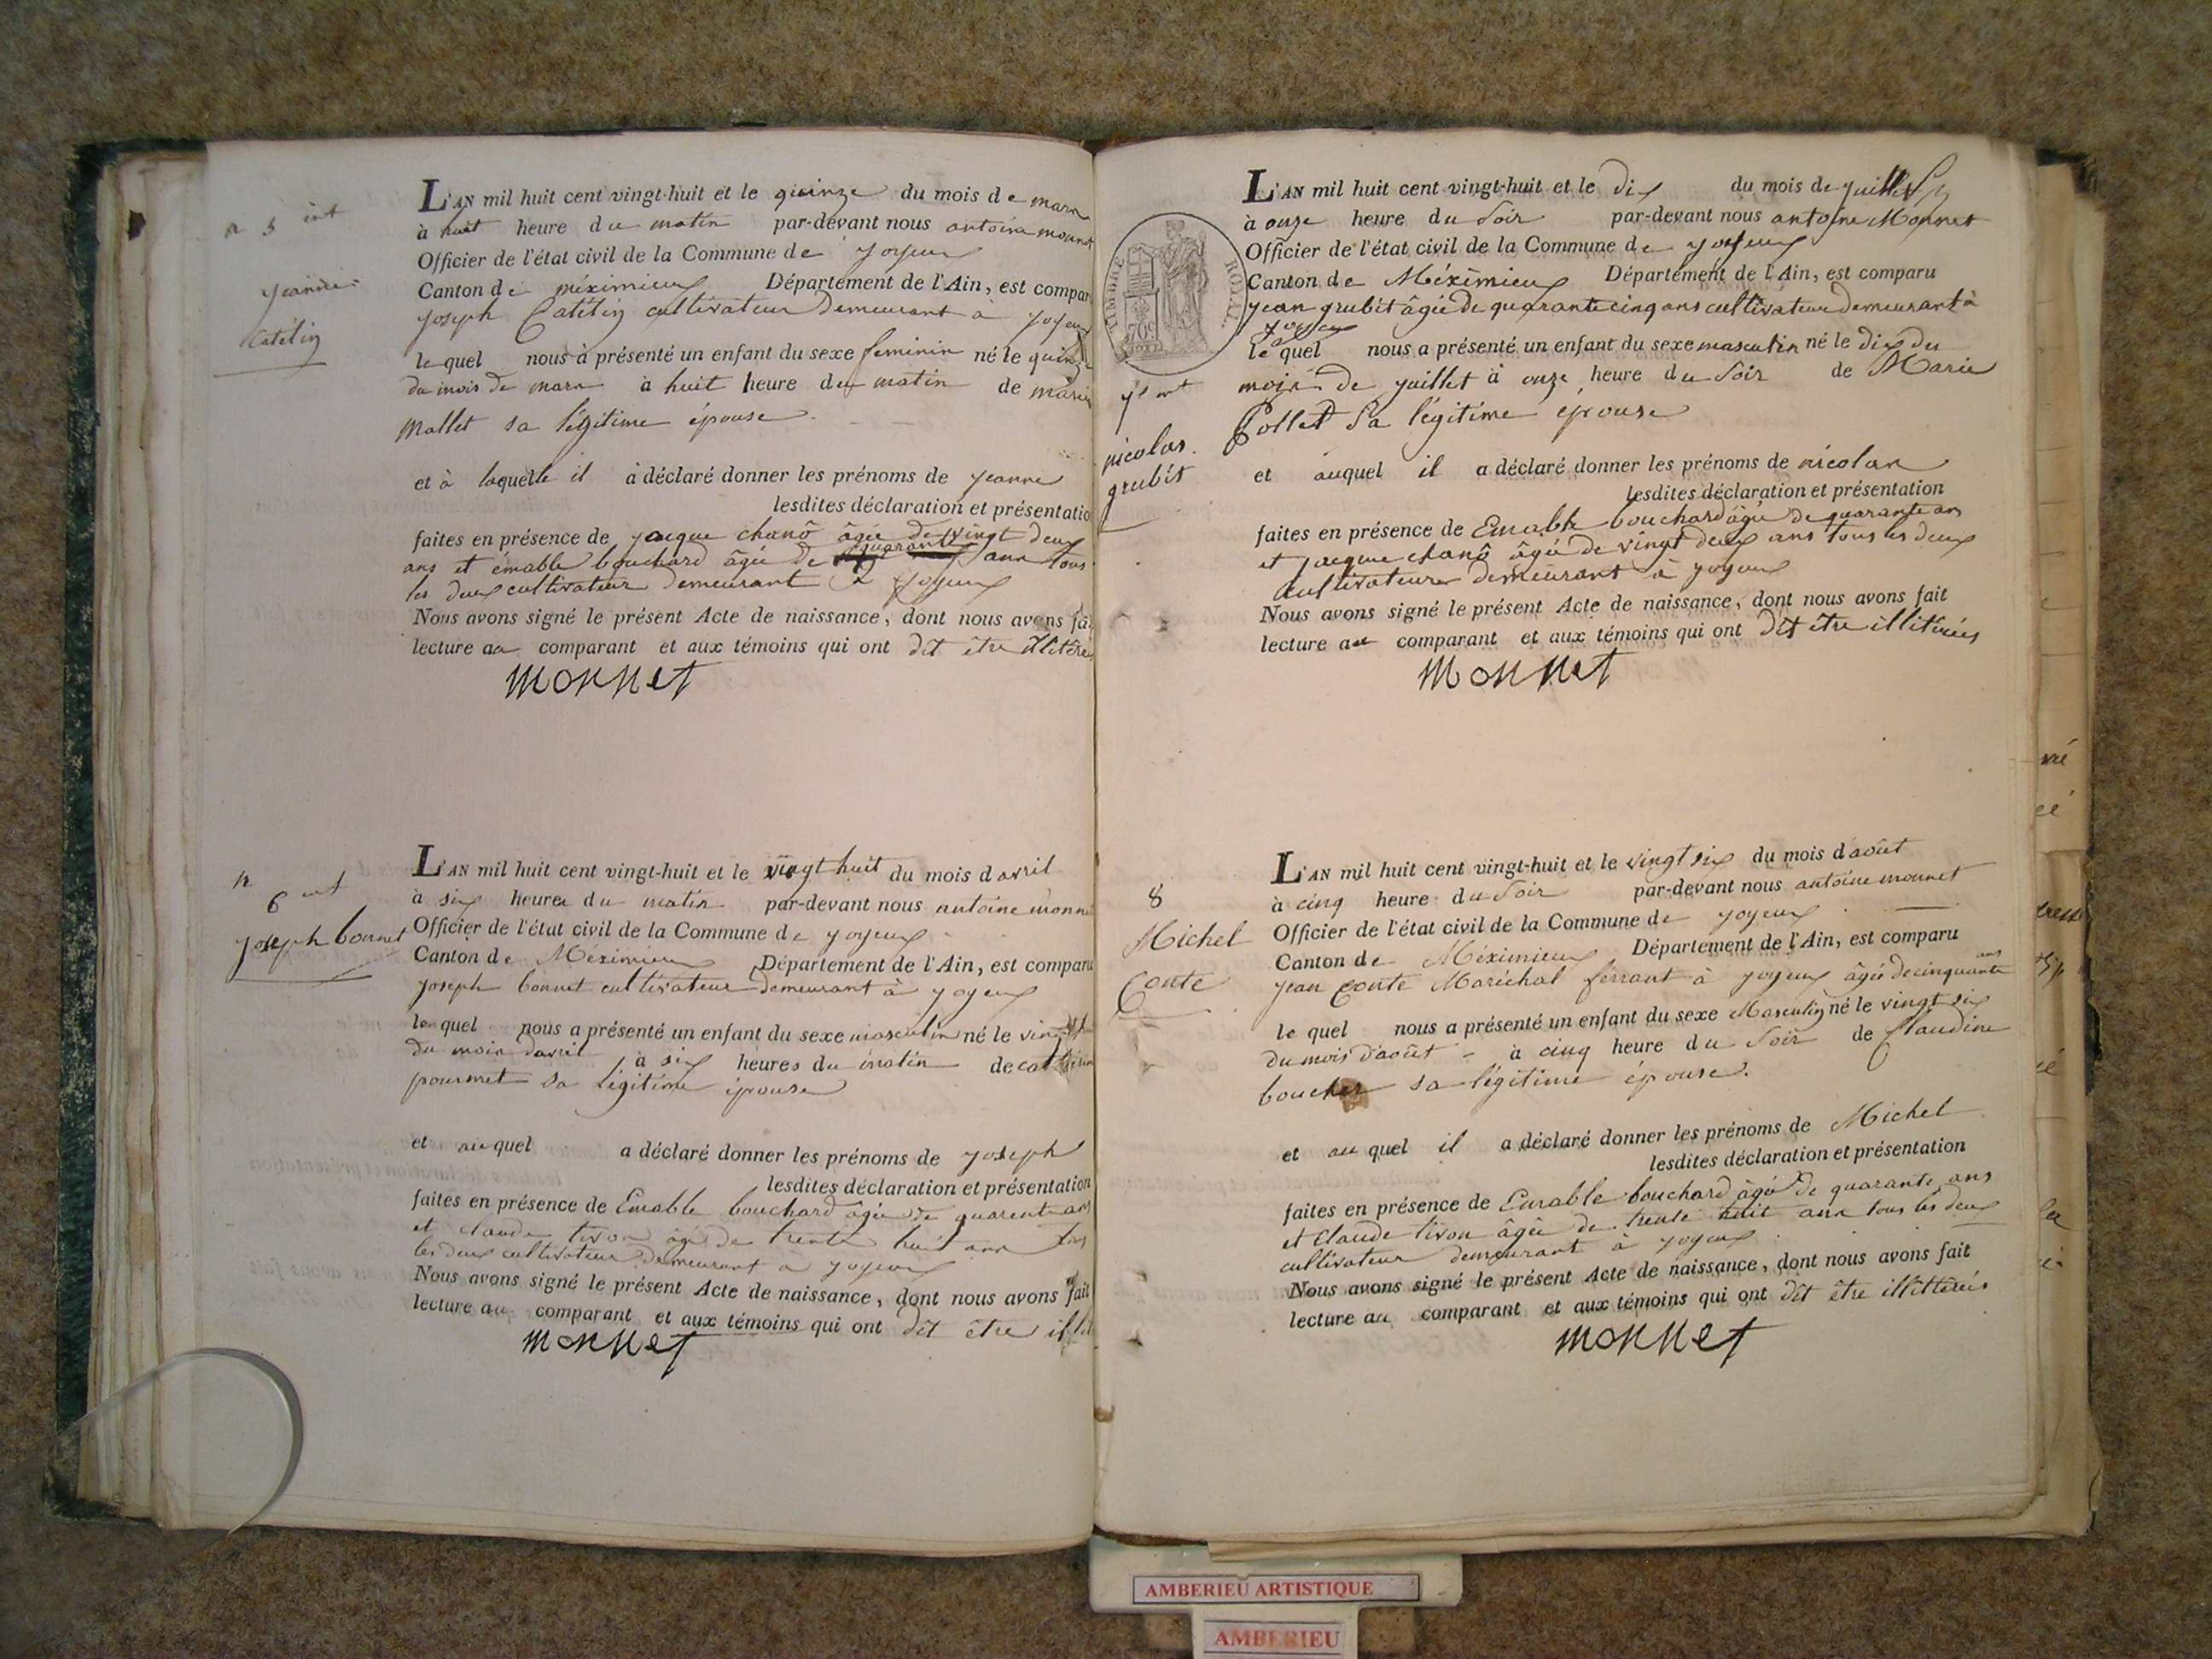 n 5 int
Jeanne
Catélin
L'AN mil huit cent vingt-huit et le quinze du mois de mars
à huit heure du matin par-devant nous antoine monnet
Officier de l'état civil de la Commune de joyeux
Canton de méximieux Département de l'Ain, est compar
joseph Catélin cultivateur Demeurant à joyeux
le quel nous à présenté un enfant du sexe feminin né le quinze
du mois de mars à huit heure du matin de marie
mallet sa légitime épouse
et à laquelle il à déclaré donner les prénoms de jeanne
lesdites déclaration et présentatio
faites en présence de jacque chanô âgée de vingt deux
ans et émable bouchard âgée de quarante ans tous
les deux cultivateur demeurant à joyeux
Nous avons signé le présent Acte de naissance, dont nous avons fai
lecture au comparant et aux témoins qui ont dit être illitéré
monnet
n
6 int
joseph bonnet
L'AN mil huit cent vingt-huit et le vingt huit du mois d avril
à six heures du matin par-devant nous antoine monne
Officier de l'état civil de la Commune de joyeux
Canton de Méximieux Département de l'Ain, est comparu
joseph bonnet cultivateur demeurant à joyeux
le quel nous a présenté un enfant du sexe masculin né le vingt
du mois davril à six heures du matin de
pournet sa légitime épouse
et au quel a déclaré donner les prénoms de joseph
lesdites déclaration et présentation
faites en présence de Emable bouchard âgée de quarente ans
et claude tivon âgé de trente huit ans tous
les deux cultivateur demeurant à joyeux
Nous avons signé le présent Acte de naissance, dont nous avons fait
lecture au comparant et aux témoins qui ont dit être illit
monnet
TIMBRE ROYAL
70c
nicolas
grubit
L'AN mil huit cent vingt-huit et le dix du mois de juillet
à onze heure du soir par-devant nous antoine Monnet
Officier de l'état civil de la Commune de joyeux
Canton de Méximieux Département de l'Ain, est comparu
jean grubit âgée de quarante cinq ans cultivateur demeurant à
joyeux
le quel nous a présenté un enfant du sexe masculin né le dix du
mois de juillet à onze heure du soir de Marie
Pollet sa légitime épouse
et auquel il a déclaré donner les prénoms de nicolas
lesdites déclaration et présentation
faites en présence de Emable bouchard âgée de quarante ans
et jacque chanô âgée de vingt deux ans tous les deux
cultivateurs demeurant à joyeux
Nous avons signé le présent Acte de naissance, dont nous avons fait
lecture au comparant et aux témoins qui ont dit être illitérés
monnet
8
Michel
Conte
L'AN mil huit cent vingt-huit et le vingt six du mois d'août
à cinq heure du soir par-devant nous antoine monnet
Officier de l'état civil de la Commune de joyeux
Canton de Méximieux Département de l'Ain, est comparu
jean Conte Maréchal ferrant à joyeux âgée de cinquante ans
le quel nous a présenté un enfant du sexe Masculin né le vingt six
du mois d'août à cinq heure du soir de Claudine
boucher sa légitime épouse.
et au quel il a déclaré donner les prénoms de Michel
lesdites déclaration et présentation
faites en présence de Emable bouchard âgé de quarante ans
et Claude tivon âgée de trente huit ans tous les deux
cultivateur demeurant à joyeux
Nous avons signé le présent Acte de naissance, dont nous avons fait
lecture au comparant et aux témoins qui ont dit être illittérés
monnet
AMBERIEU ARTISTIQUE
AMBERIEU